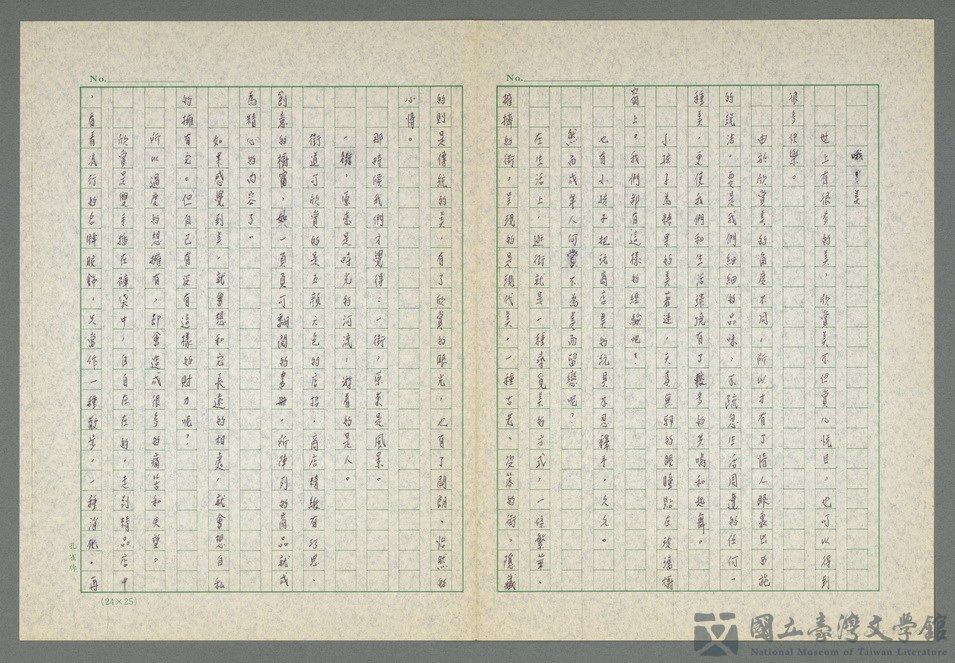 No.
哦！美
世上有很多的美，欣賞美不但賞心悅目，也可以得到
很多快樂。
由於欣賞美的角度不同，所以才有了情人眼裏出西施
的說法，要是我們細細的品味，不疏忽生活周遭的任何一
種美，更使我們和生活環境有了較多的共鳴和起舞。
了孩子為糖果的美著迷，天真無邪的眼睛貼在玻璃櫥
窗上。我們都有這樣的經驗吧！
也有小孩子把玩商店裏的玩具不忍釋手，久久。
然而成年人何嘗不為美而留戀呢？
在生活上，逛街就是一種尋覓美的方式，一任繁華、
擁擠的街，呈現的是現代美，一種古老、沒落的街，隱藏
No.
的則是傳統的美，有了欣賞的眼光，也有了開朗、怡然的
心情。
那時候我們才覺得：一街，原來是風景。
「街，原來是時光的河流，游着的是人。
街道可欣賞的是五顏六色的店招，商店精緻有巧思、
創意的櫥窗，如一頁頁可翻閱的畫冊，所陳列的商品就成
為精心的內容了。
如果感覺到美，就會想和它長遠的相處，就會想自私
的擁有它。但自己有沒有這樣的財力呢？
所以過度的想擁有，都會造成很多的痛苦和失望。
欣賞是雙手插在褲袋中，自自在在的，走到精品店中
，看看流行的名牌服飾，只當作一種散步，一種消化，再
(24×25)
國立臺灣文學館
National Museum of Taiwan Literature